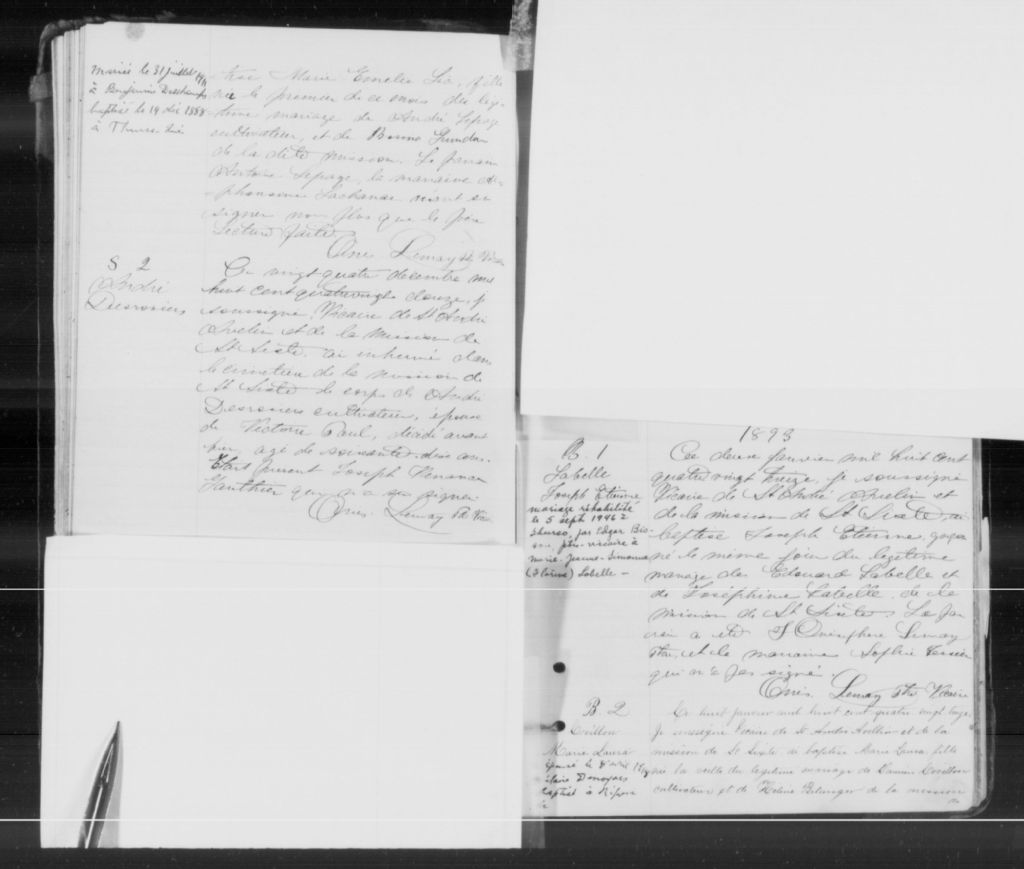 Marié le 31 juillet
à Benjamin Deschamps
baptisé le 19 déc 1888
à Thurso
Marie Emelia fille
née le premier de ce mois du légi-
time mariage de André Lepage
cultivateur, et de
de la dite mission. Le parrain
Antoine Lepage, la marraine Al-
phonsine Lachance n'ont su
signer non plus que le père
Lecture faite
Onés. Lemay Ptre Vicaire
S 2
André
Desrosiers
Ce vingt quatre decembre mil
huit cent quatrevingt douze, je
soussigné, Vicaire de St André
Avelin et de la Mission de
St Sixte, ai inhumé dans
le cimetière de la mission de
St Sixte le corps de André
Desrosiers cultivateur, époux
de Victoire Paul, décédé avant
hier, agé de soixante
Etait présent Joseph Venance
Gauthier qui n'a su signer
Onés. Lemay Ptre Vic.
1893
B. 1
Labelle
Joseph Etienne
mariage réhabilité
le 5 sept 1946 à
Thurso, par Edgar
ptre-vicaire à
Marie-Jeanne-Simonna
Labelle -
Ce deux Janvier mil huit cent
quatre vingt treize, je soussigné
Vicaire de St André Avelin et
de la mission de St Sixte, ai
baptisé Joseph Etienne,
né le même jour du légitime
mariage de Edouard Labelle et
de Joséphine Labelle, de la
mission de St Sixte. Le par
rain a été J Onésiphore Lemay
Ptre, et la marraine Sophie Tessier
qui n'a pas signé.
Onés. Lemay Ptre Vicaire
B. 2
Marie Laura
épousé le
baptisé à Ripon
Ce huit janvier mil huit cent quatre vingt treize,
Je soussigné Vicaire de St André Avellin et de la
mission de St Sixte ai baptisé Marie Laura fille
née la veille du légitime mariage de Damien
cultivateur et de Helene Belanger de la mission